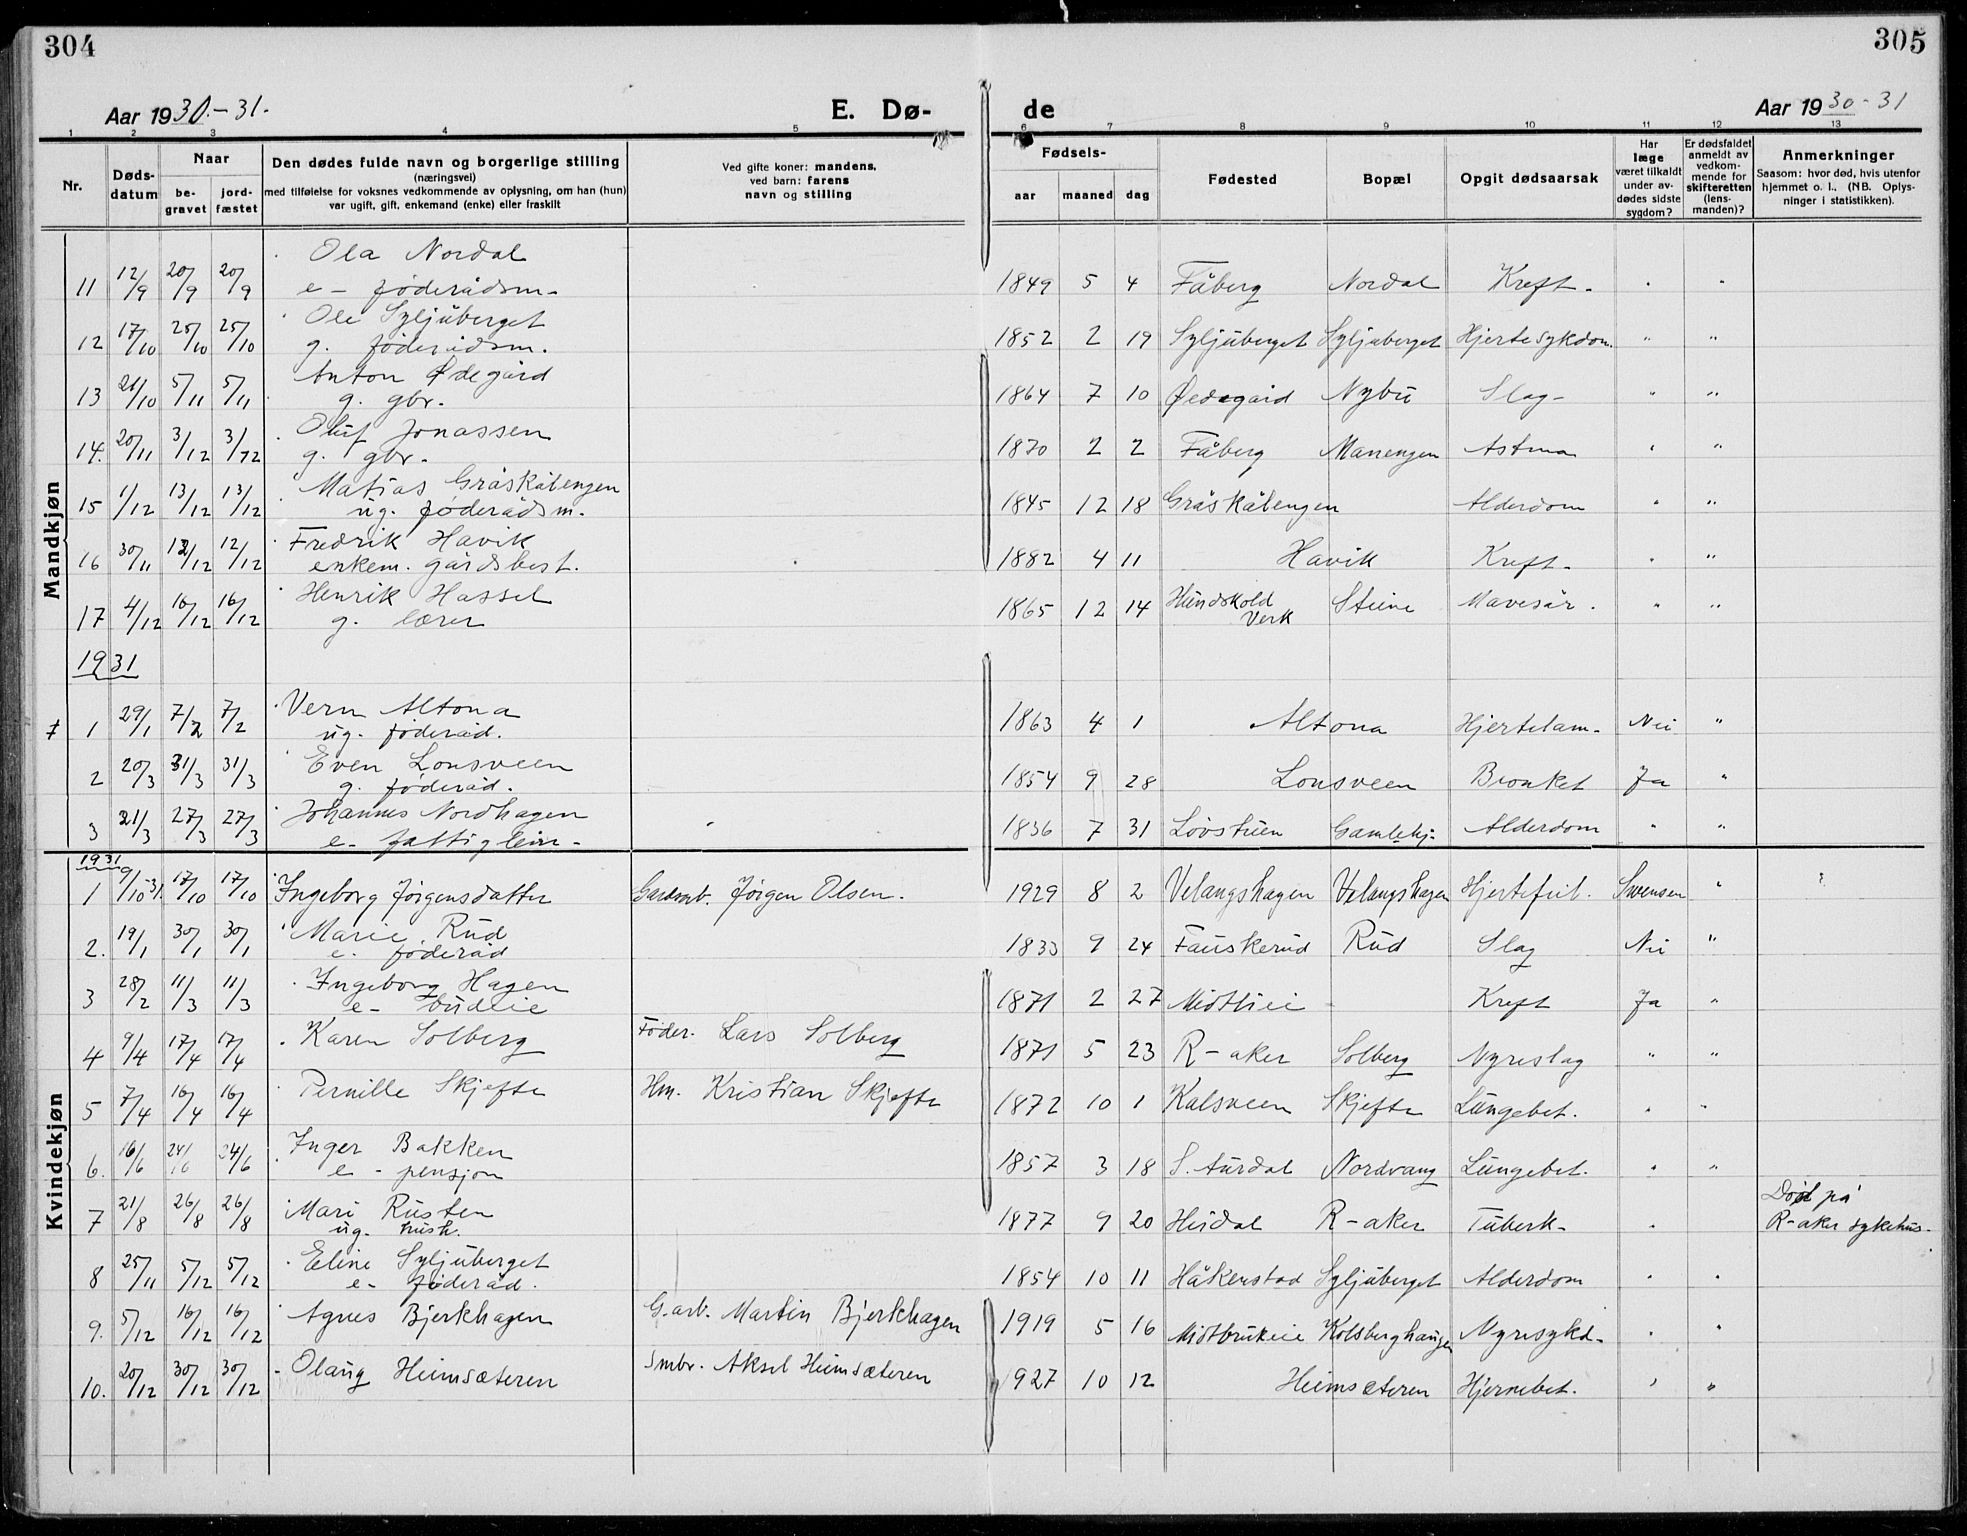 304
305
Aar 1930.-31.
E. Dø-
de
Aar 1930-31
1 2 3 4 5 6 7 8 9 10 11 12 13
Nr.
Døds-
datum
Naar
be-
gravet
jord-
fæstet
Den dødes fulde navn og borgerlige stilling
(næringsvei)
med tilføielse for voksnes vedkommende av oplysning, om han (hun)
var ugift, gift, enkemand (enke) eller fraskilt
Ved gifte koner: mandens,
ved barn: farens
navn og stilling
Fødsels-
aar maaned dag
Fødested
Bopæl
Opgit dødsaarsak
Har
læge
været tilkaldt
under av-
dødes sidste
sygdom?
Er dødsfaldet
anmeldt av
vedkom-
mende for
skifteretten
(lens-
manden)?
Anmerkninger
Saasom: hvor død, hvis utenfor
hjemmet o. l., (NB. Oplys-
ninger i statistikken).
Mandkjøn
Ola Nordal
11 12/9 20/9 20/9 e- føderådsm- 1849 5 4 Fåberg Nordal Kreft- " "
Ole Syljuberget
12 17/10 25/10 25/10 g. føderådsm. 1852 2 19 Syljuberget Syljuberget Hjertesykdom. " "
Anton Ødegård
13 21/10 5/11 5/11 g. gbr. 1864 7 10 Ødegård Nybu Slag- " "
Oluf Jonassen
14. 20/11 3/12 3/12 g. gbr. 1870 2 2 Fåberg Manengen Astma " "
Matias Gråskåbengen
15 1/12 13/12 13/12 ug. føderådsm. 1845 12 18 Gråskåbengen Alderdom " "
Fredrik Havik
16 30/11 12/12 12/12 enkem. gårdsbest. 1882 4 11 Havik Kreft- " "
Henrik Hassel
17 4/12 16/12 16/12 g. lærer 1865 12 14 Hundskold Verk Steine Mavesår. " "
1931
Vern Altona
1 29/1 7/2 7/2 ug. føderåd. 1863 4 1 Altona Hjertelam- Nei "
Even Lonsveen
2 20/3 31/3 31/3 g. føderåd. 1854 9 28 Lonsveen Bronket Ja "
Johannes Nordhagen
3 21/3 27/3 27/3 e- fattiglem- 1836 7 31 Løvstuen Gamlehj- Alderdom " "
Kvindekjøn
1931
1 9/10-31. 17/10 17/10 Ingeborg Jørgensdatter Jørgen Olsen. 1929 8 2 Velangshagen Velangshagen Hjertefeil. Svensen "
Marie Rud
2. 19/1 30/1 30/1 e. føderåd 1833 9 24 Fauskerud Rud Slag Nei "
Ingeborg Hagen
3 28/2 11/3 11/3 e- budeie 1871 2 27 Midtlien - Kreft Ja "
4 9/4 17/4 17/4 Karen Solberg Føder. Lars Solberg 1871 5 23 R-aker Solberg Nyreslag " "
5 7/4 16/4 16/4 Pernille Skjefte Hm. Kristian Skjefte 1872 10 1 Kalsveen Skjefte Lungebet. " "
Inger Bakken
6. 16/6 24/6 24/6 e - pensjon 1857 3 18 S. Aurdal Nordvang Lungebet. " "
Mari Rusten
7 21/8 26/8 26/8 ug. hush. 1877 9 20 Heidal R-aker Tuberk- " Død på
R-aker sykehus-
Eline Syljuberget
8 25/11 5/12 5/12 e- føderåd. 1854 10 11 Håkenstad Syljuberget Alderdom " "
9. 5/12 16/12 16/12 Agnes Bjerkhagen G.arb. Martin Bjerkhagen 1919 5 16 Midtbrukeie Kolsberghaugen Nyresykd- " "
10. 20/12 30/12 30/12 Olaug Heimsæteren Smbr. Aksel Heimsæteren 1927 10 12 Heimsæteren Hjernebet. " "